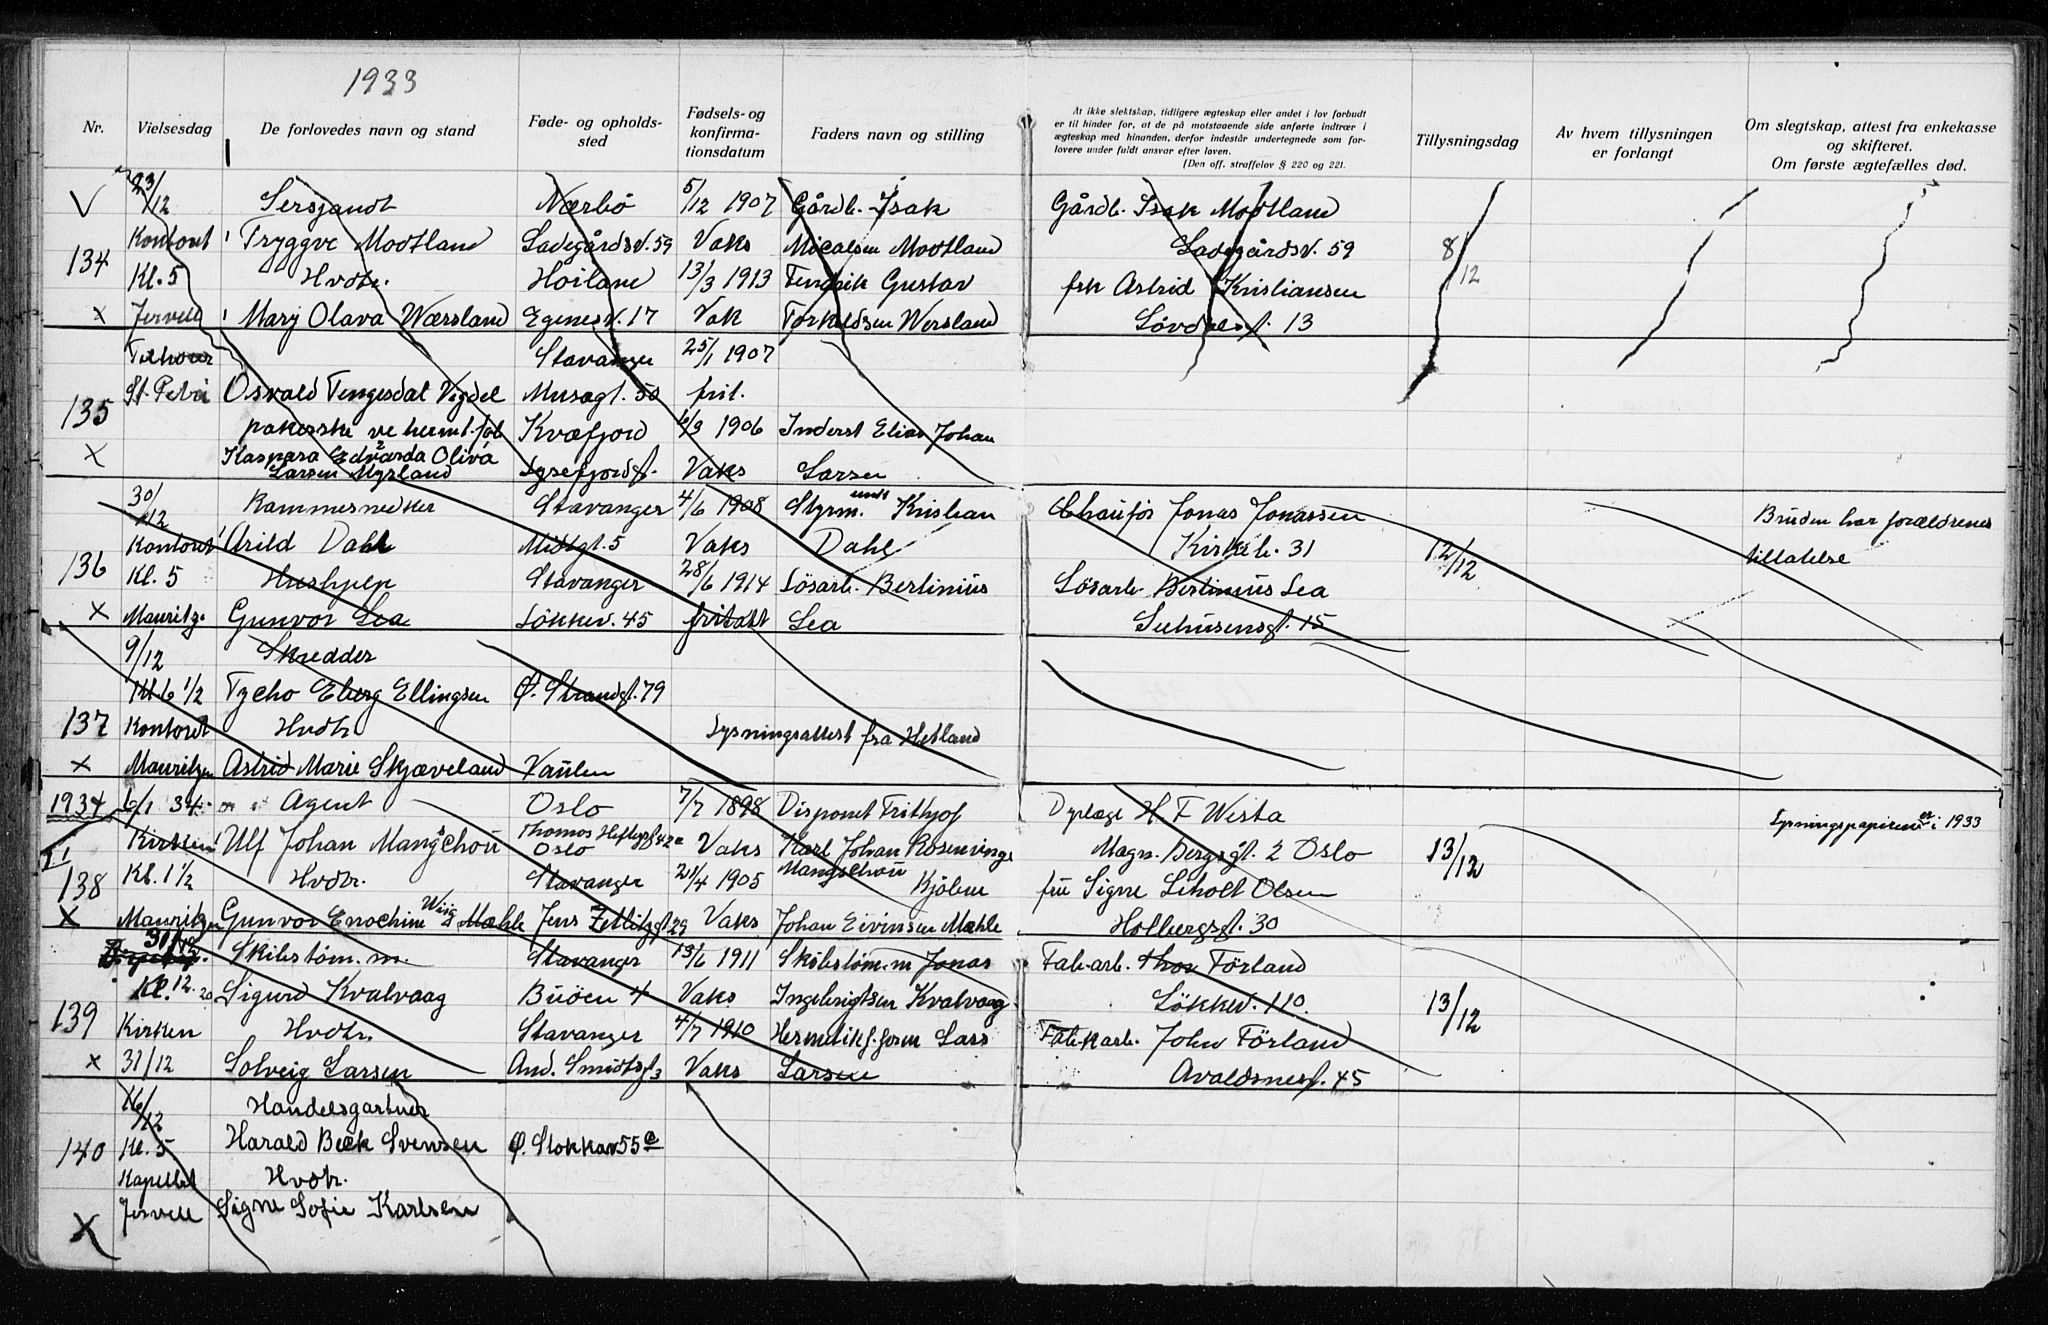 1933
Nr.
Vielsesdag
De forlovedes navn og stand
Føde- og opholds-
sted
Fødsels- og
konfirma-
tionsdatum
Faders navn og stilling
At ikke slektskap, tidligere ægteskap eller andet i lov forbudt
er til hinder for, at de på motstaaende side anførte indtrær i
ægteskap med hinanden, derfor indestår undertegnede som for-
lovere under fuldt ansvar efter loven.
(Den off. straffelov § 220 og 221.
Tillysningsdag
Av hvem tillysningen
er forlangt
Om slegtskap, attest fra enkekasse
og skifteret.
Om første ægtefælles død.
23/12 Sersjandt Nærbö 5/12 1907 Gårdb. Isak Gårdb. Isak Modtland
Kontoret Tryggve Modtland Ladegårdsv. 59 Vaks Micalsen Modtland Ladegårdsv. 59 8/12
134 Kl. 5 Hvdtr. Hoiland 13/3 1913 Fendrik Gustav frk Astrid Kristiansen
x Jervell Mary Olava Wærsland Egenesv. 17 Vak Torkeldsen Wersland Lövdalsgt. 13
Stavanger 25/1 1907
135 St. Petri Osvald Tengesdal Vigdel Musægt. 50 frit.
pakerske ve hermt. föb Kvæfjord 6/3 1906 Inderst Elias Johan
x Kaspara Edvarda Oliva
Larsen Myrland Lysefjordgt. Vaks Larsen
30/12 Rammesnedker Stavanger 4/6 1908 Styrm. Kristian Chauför Jonas Jonassen Bruden har forældrenes
Kontoret Arild Dahl Midtgt. 5 Vaks Dahl Kirkeb. 31 12/12 tillatelse
136 Kl. 5 Hushjelp Stavanger 28/6 1914 Lösarb. Bertinius Lösarb. Bertinius Lea
x Mauritz. Gunvor Lea Lökkev. 45 fritakt Lea Sehusensgt. 15
9/12 Skredder
Kl 6 1/2 Tycho Eberg Ellingsen Ø. Strandgt. 79
137 Kontoret Hvdtr Lysningsattest fra Hetland
x Mauritzen Astrid Marie Skjæveland Vaulen
1934 6/1 34. Agent Oslo 7/7 1898 Disponet Frithjof Dyrlæge H. F. Westa Lysningspapirene er i 1933
Kirken Ulf Johan Mangschou Thomas Heftyesgt 42 c
Oslo Vaks Karl Johan Rosenvinge
Mangschou Magn. Bergsgt. 2 Oslo 13/12
138 Kl. 1 1/2 Hvdtr. Stavanger 21/4 1905 Kjöbm fru Signe Leholt Olsen
x Mauritzen Gunvor Enochine Wiig Mæhle Jens Zetlitzgt 29 Vaks Johan Eivinsen Mæhle Holbergsgt. 30
31/12 Skibstöm. m. Stavanger 13/6 1911 Skibstöm. m Jonas Fab. arb. Thor Förland
Kl. 12.20 Sigurd Kvalvaag Buöen 4 Vaks Ingebrigtsen Kvalvaag Lökkev. 110. 13/12
139 Kirken Hvdtr. Stavanger 4/7 1910 Hermetikf. form Lars Fabrkarb. John Förland
x 31/12 Solveig Larsen And. Smidtsgt 3 Vaks Larsen Avaldsnesgt. 45
16/12 Handelsgartner
140 Kl. 5 Harald Beck Svensen Ø. Stokkav 55 c
Kapellet Hvdtr.
x Jervell Signe Sofie Karlsen